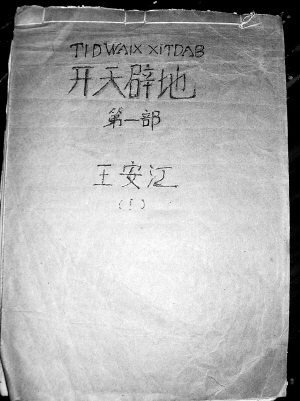 TIDWAIX XITDAB
开天辟地
第一部
王安江
(1)